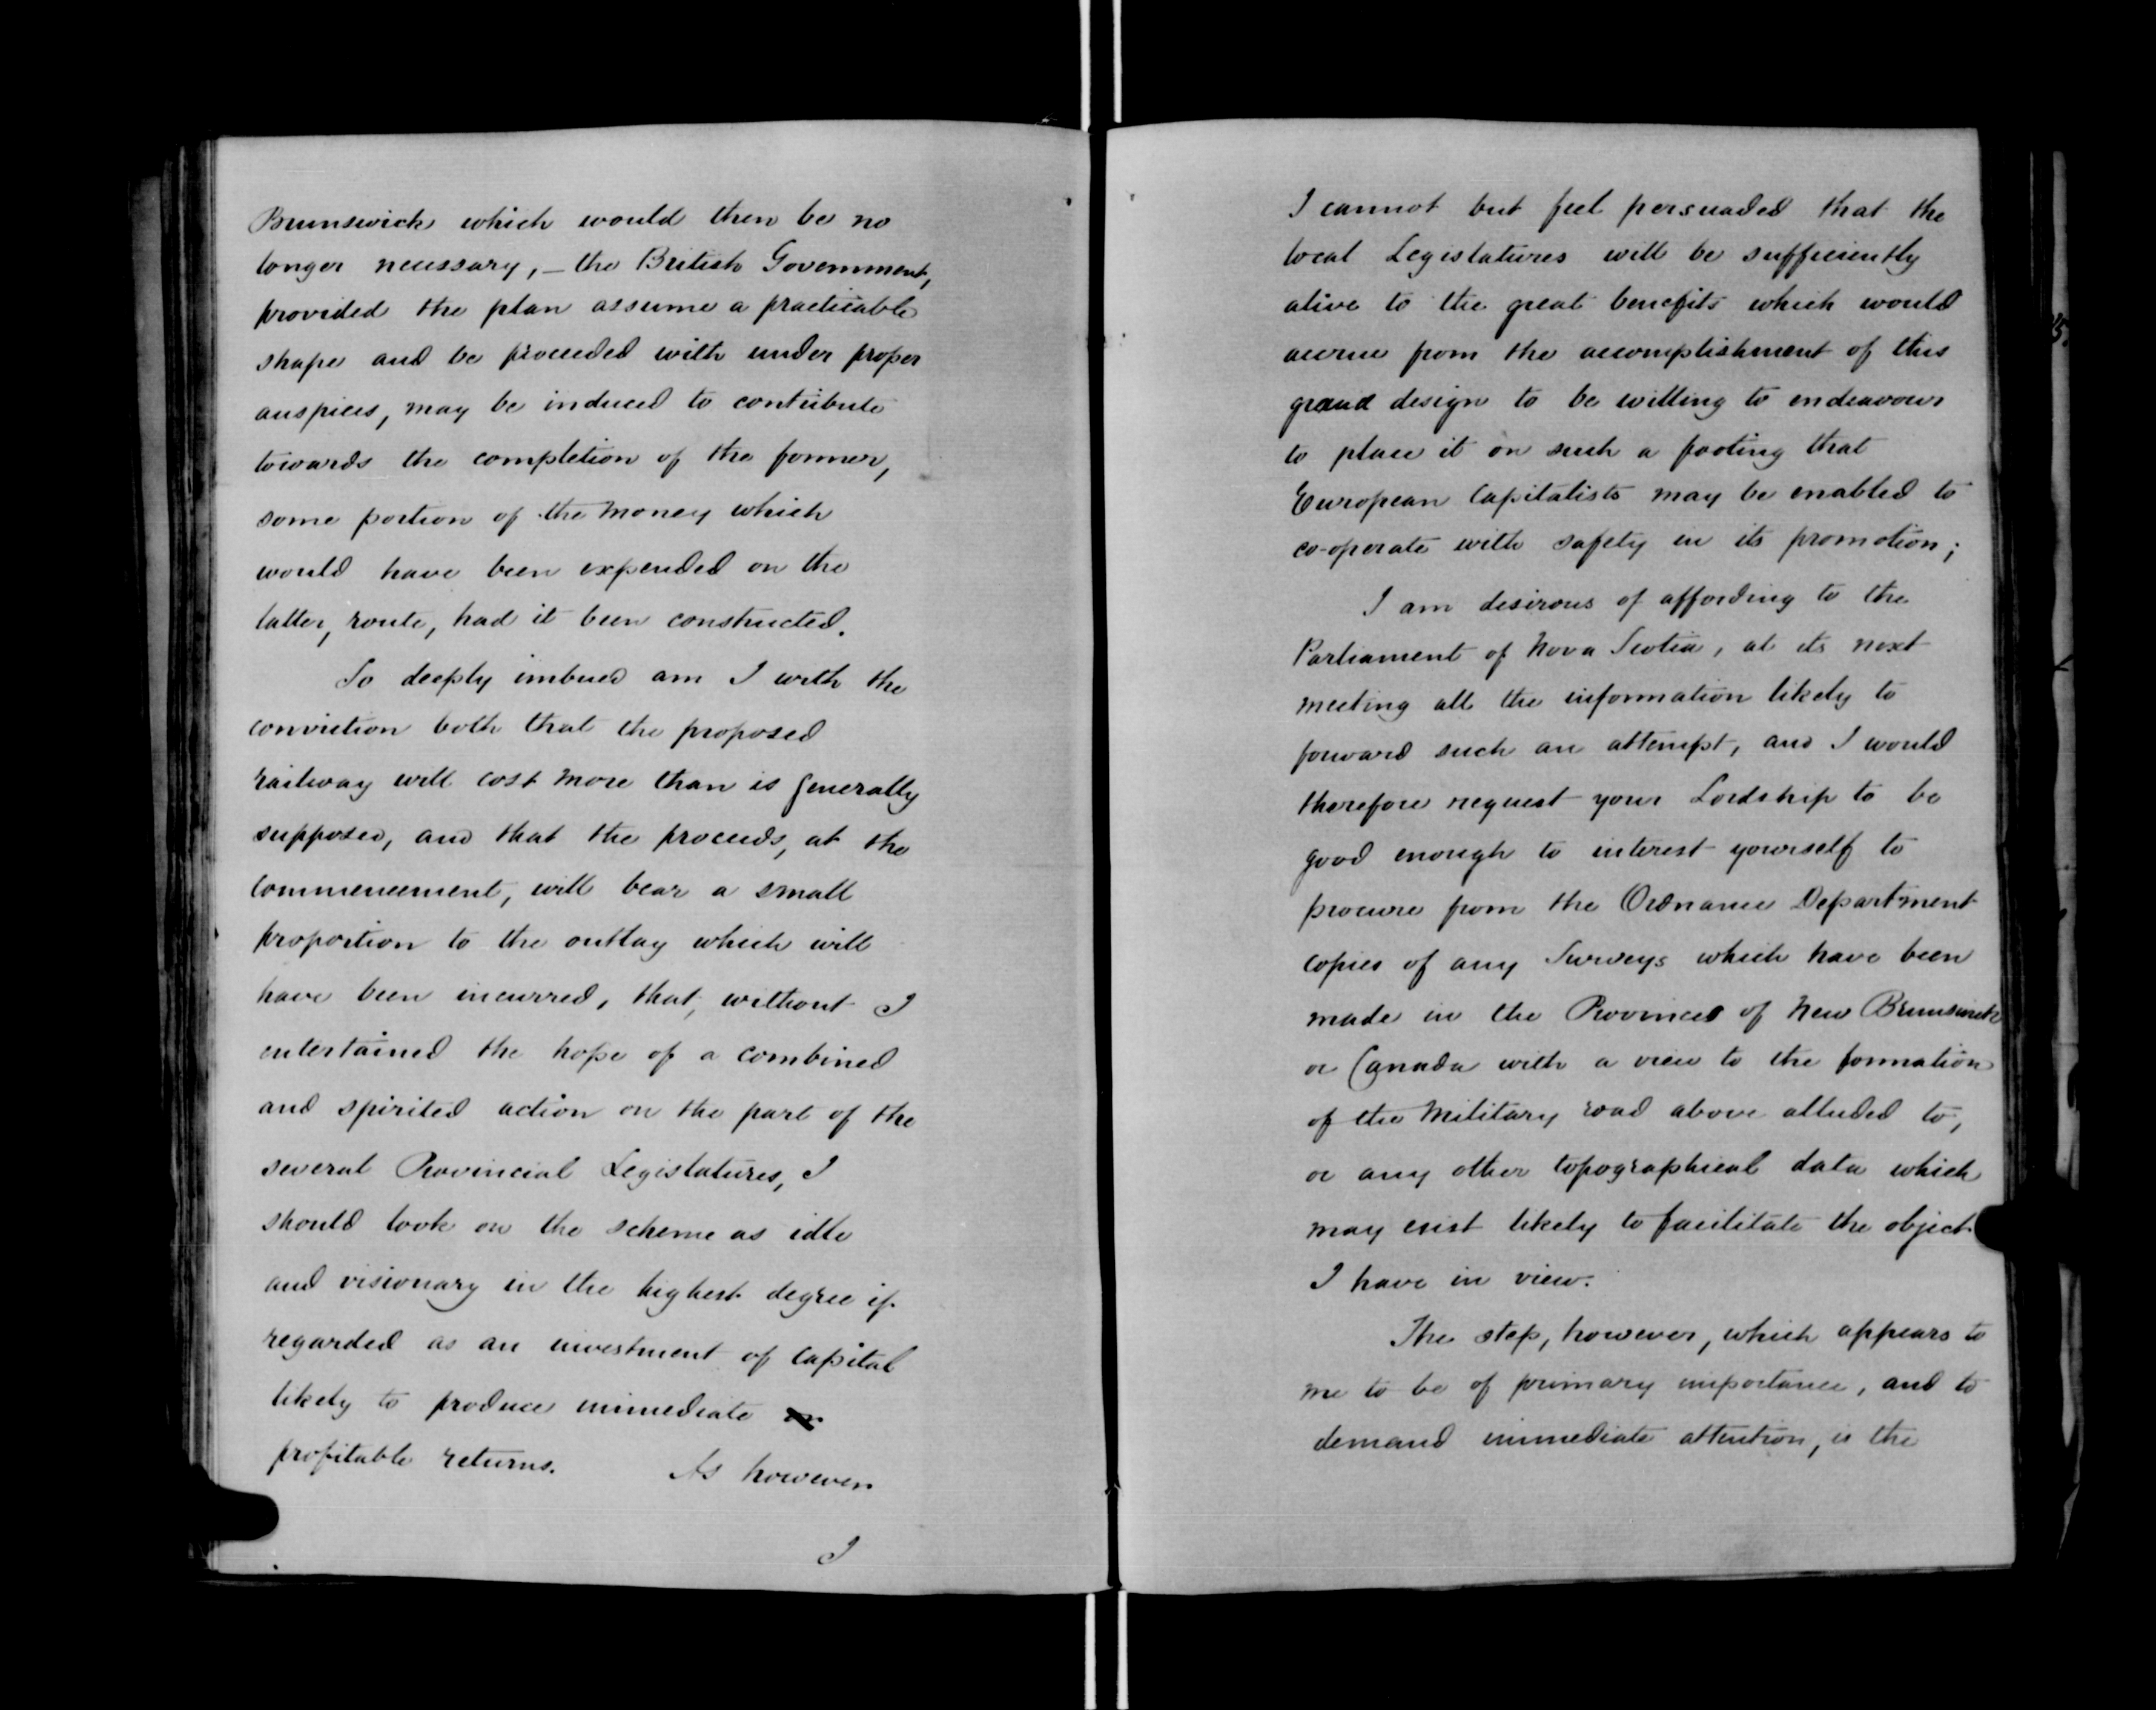 Brunswick which would then be no
longer necessary, – the British Government,
provided the plan assume a practicable
shape and be proceeded with under proper
auspices, may be induced to contribute
towards the completion of the former,
some portion of the money which
would have been expended on the
latter, route, had it been constructed.
So deeply imbued am I with the
conviction both that the proposed
railway will cost more than is generally
supposed, and that the proceeds, at the
commencement, will bear a small
proportion to the outlay which will
have been incurred, that, without I
entertained the hope of a combined
and spirited action on the part of the
several Provincial Legislatures, I
should look on the scheme as idle
and visionary in the highest degree if
regarded as an investment of capital
likely to produce immediate
profitable returns. As however
I
I cannot but feel persuaded that the
local Legislatures will be sufficiently
alive to the great benefits which would
accrue from the accomplishment of this
grand design to be willing to endeavour
to place it on such a footing that
European Capitalists may be enabled to
co-operate with safety in its promotion;
I am desirous of affording to the
Parliament of Nova Scotia, at its next
meeting all the information likely to
forward such an attempt, and I would
therefore request your Lordship to be
good enough to interest yourself to
procure from the Ordnance Department
copies of any Surveys which have been
made in the Provinces of New Brunswick
or Canada with a view to the formation
of the Military road above alluded to,
or any other topographical data which
may exist likely to facilitate the object
I have in view.
The step, however, which appears to
me to be of primary importance, and to
demand immediate attention, is the